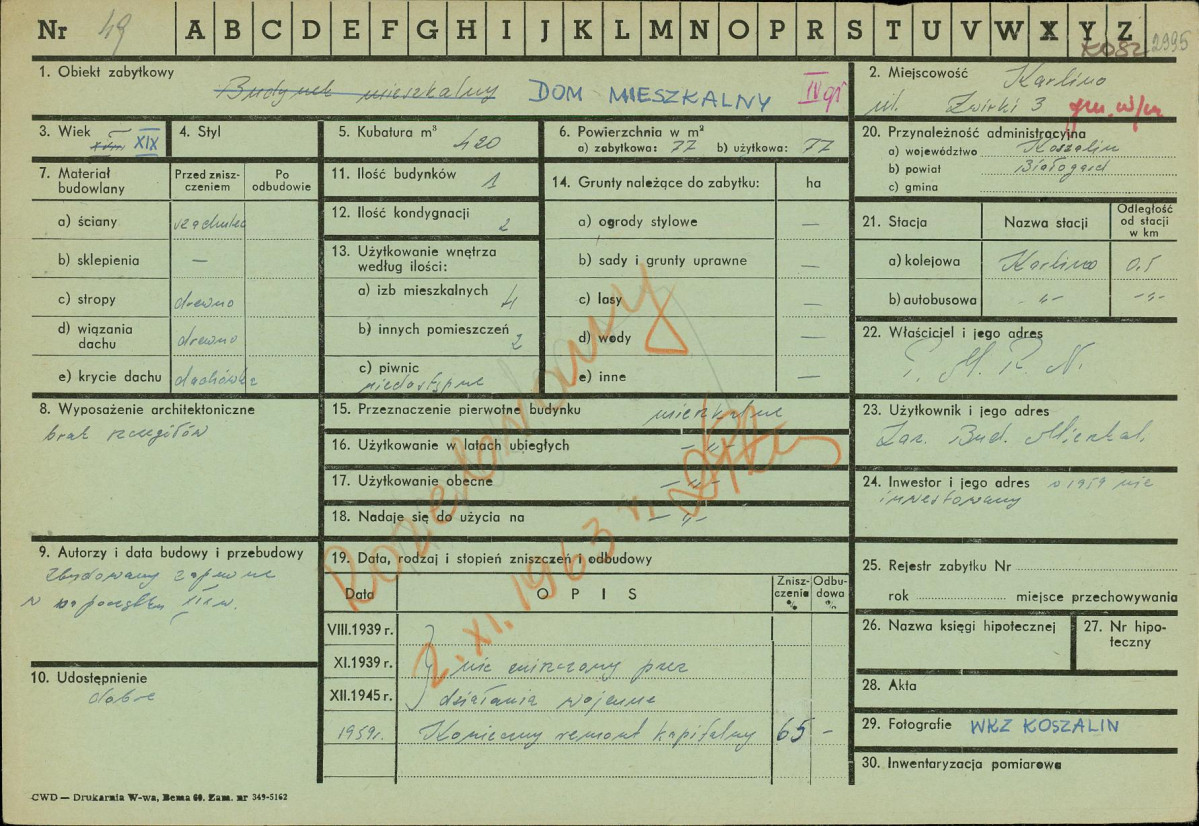 Nr 49 A B C D E F G H I J K L M N O P R S T U V W X Y Z
KOSZ 2995
1. Obiekt zabytkowy
Budynek mieszkalny DOM MIESZKALNY IV gr
2. Miejscowość Karlino
ul. Żwirki 3
3. Wiek XIX
4. Styl
5. Kubatura m³ 420
6. Powierzchnia w m²
a) zabytkowa: 77 b) użytkowa: 77
20. Przynależność administracyjna
a) województwo Koszalin
b) powiat Białogard
c) gmina
7. Materiał budowlany
Przed zniszczeniem
Po odbudowie
a) ściany szachulec
b) sklepienia —
c) stropy drewno
d) wiązania dachu drewno
e) krycie dachu dachówka
11. Ilość budynków 1
12. Ilość kondygnacji 2
13. Użytkowanie wnętrza
według ilości:
a) izb mieszkalnych 4
b) innych pomieszczeń 2
c) piwnic
niedostępne
14. Grunty należące do zabytku: ha
a) ogrody stylowe —
b) sady i grunty uprawne —
c) lasy —
d) wody —
e) inne —
21. Stacja Nazwa stacji Odległość od stacji w km
a) kolejowa Karlino 0,5
b) autobusowa -"- -"-
22. Właściciel i jego adres
P. M. R. N.
8. Wyposażenie architektoniczne
brak szczegółów
15. Przeznaczenie pierwotne budynku mieszkalne
16. Użytkowanie w latach ubiegłych -"-
17. Użytkowanie obecne -"-
18. Nadaje się do użycia na -"-
23. Użytkownik i jego adres
Zarz. Bud. Mieszkal.
24. Inwestor i jego adres w 1959 nie
inwestowany
9. Autorzy i data budowy i przebudowy
zbudowany zapewne
w początku w.
19. Data, rodzaj i stopień zniszczeń i odbudowy
Data OPIS Zniszczenia % Odbudowa %
VIII.1939 r.
XI.1939 r. nie zniszczony przez
XII.1945 r. działania wojenne
1959r. Konieczny remont kapitalny 65 —
Rozebrany
2. XI. 1963 r.
10. Udostępnienie
dobre
25. Rejestr zabytku Nr
rok miejsce przechowywania
26. Nazwa księgi hipotecznej
27. Nr hipoteczny
28. Akta
29. Fotografie WKZ KOSZALIN
30. Inwentaryzacja pomiarowa
CWD — Drukarnia W-wa, Bema 60. Zam. nr 349-5162